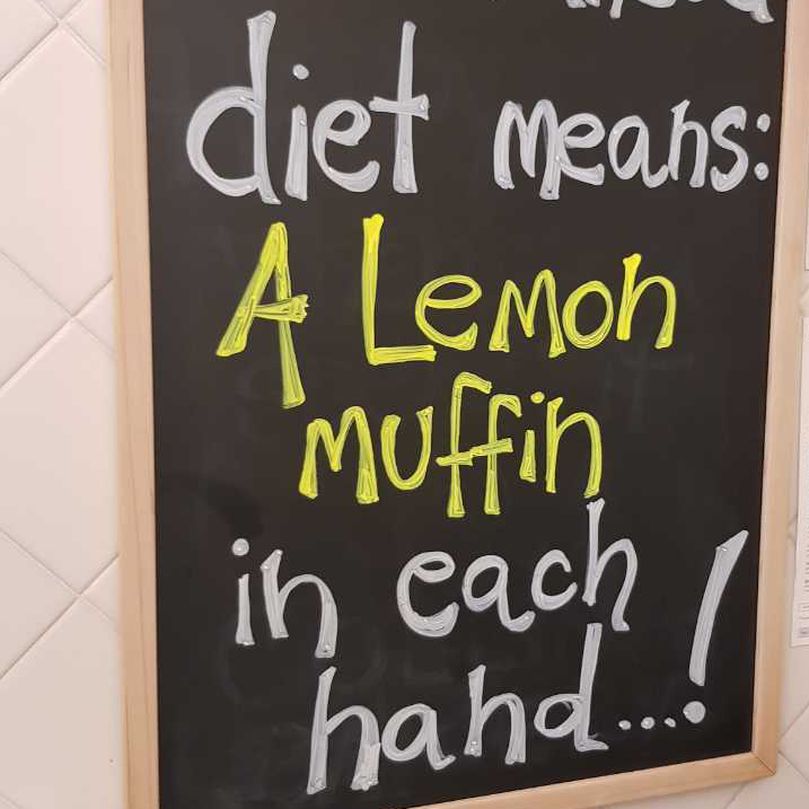 diet means:
A Lemon
muffin
in each
hand...!